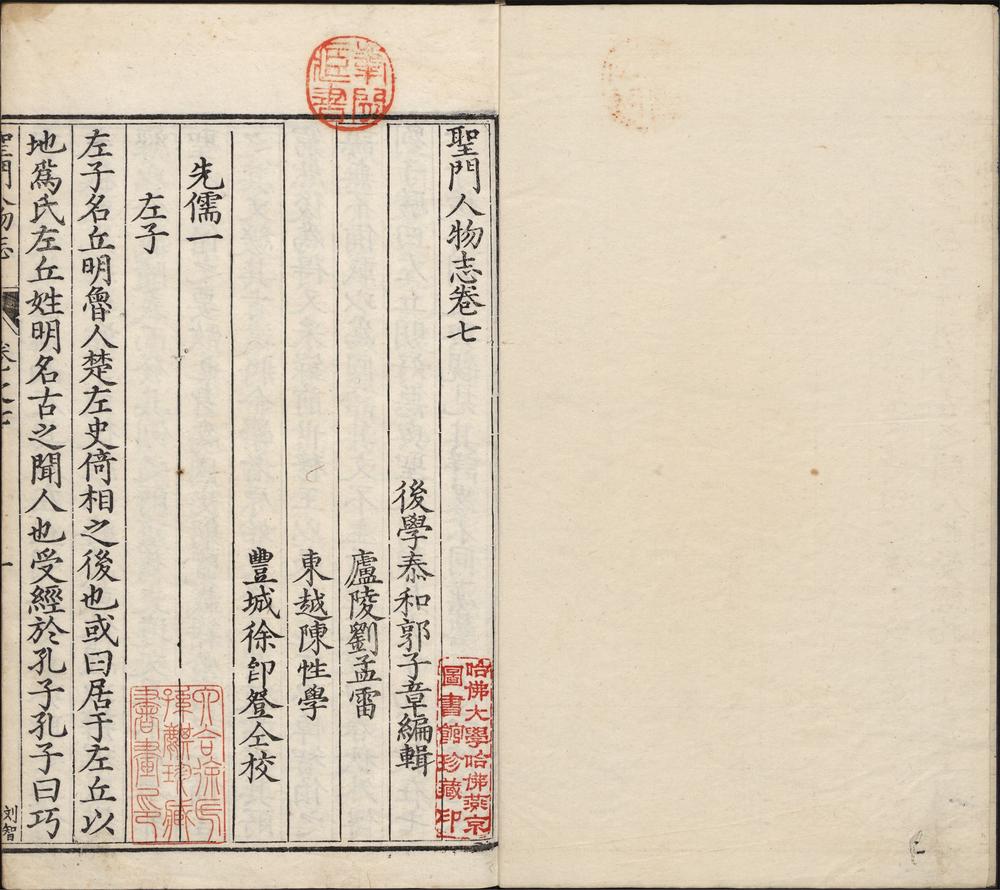 聖門人物志卷七
後學泰和郭子章編輯
廬陵劉孟雷
東越陳性學
豐城徐即登仝校
先儒一
左子
左子名丘明魯人楚左史倚相之後也或曰居于左丘以
地爲氏左丘姓明名古之聞人也受經於孔子孔子曰巧
聖門人物志
卷之七
一
刘智
哈佛大學哈佛燕京
圖書館珍藏印